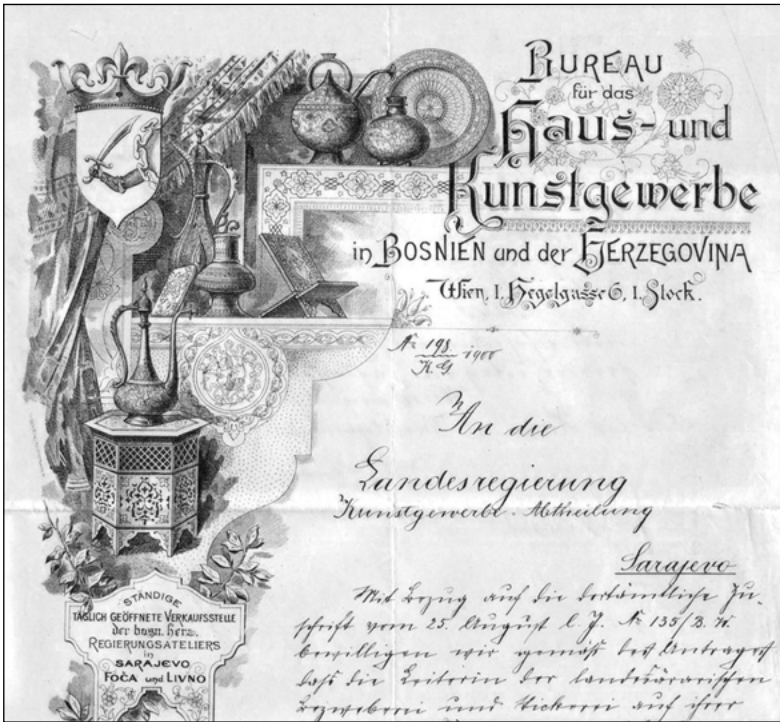 BUREAU
für das
Haus- und
Kunstgewerbe
in BOSNIEN und der HERZEGOVINA
Wien, I. Hegelgasse 6, I. Stock.
№ 198
K. G. 1900
An die
Landesregierung
Kunstgewerbe-Abtheilung
Sarajevo
Mit Bezug auf die dortämtliche Zu-
schrift vom 25. August l. J. № 135/B. W.
bewilligen wir gemäß des Antrages
daß die Leiterin der landesärarischen
Bezweberei und Stickerei auf ihrer
STÄNDIGE
TÄGLICH GEÖFFNETE VERKAUFSSTELLE
der bosn. herz.
REGIERUNGSATELIERS
in
SARAJEVO
FOČA und LIVNO